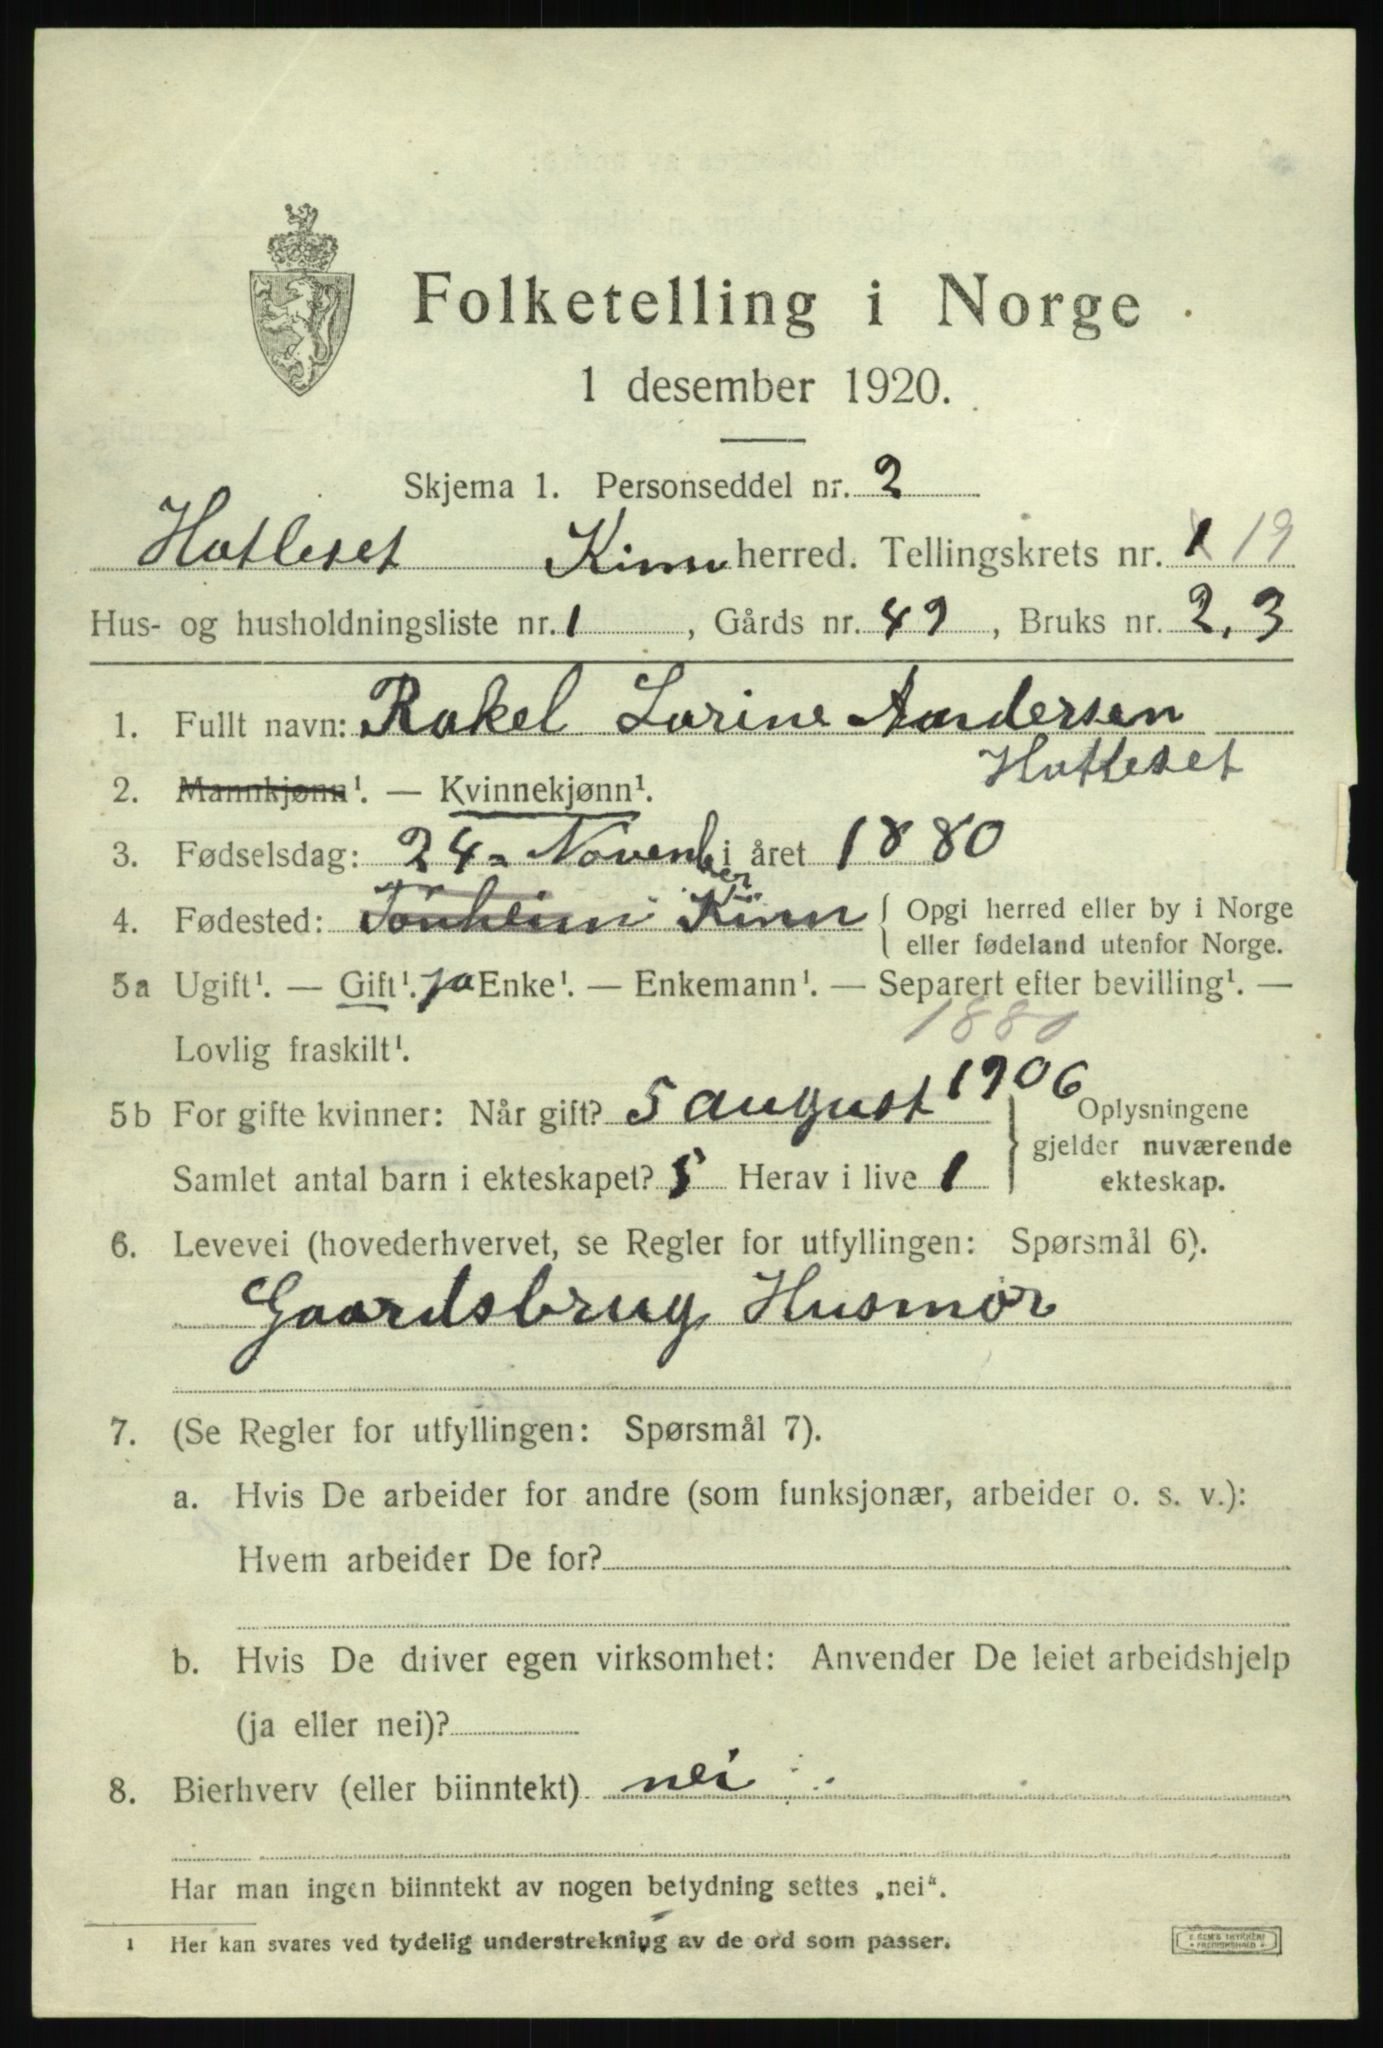 Folketelling i Norge
1 desember 1920.
Skjema 1. Personseddel nr. 2
Hatleset Kinn herred. Tellingskrets nr. 1 19
Hus- og husholdningsliste nr. 1, Gårds nr. 49, Bruks nr. 2, 3
1. Fullt navn: Rakel Larine Andersen
Hatleset
2. Mannkjønn¹. — Kvinnekjønn¹.
3. Fødselsdag: 24 November i året 1880
4. Fødested: Kinn { Opgi herred eller by i Norge
eller fødeland utenfor Norge.
5a Ugift¹. — Gift¹. ja Enke¹. — Enkemann¹. — Separert efter bevilling¹. —
Lovlig fraskilt¹.
1880
5b For gifte kvinner: Når gift? 5 august 1906 } Oplysningene
gjelder nuværende
Samlet antal barn i ekteskapet? 5 Herav i live 1 ekteskap.
6. Levevei (hovederhvervet, se Regler for utfyllingen: Spørsmål 6).
Gaardsbrug Husmor
7. (Se Regler for utfyllingen: Spørsmål 7).
a. Hvis De arbeider for andre (som funksjonær, arbeider o. s. v.):
Hvem arbeider De for?
b. Hvis De driver egen virksomhet: Anvender De leiet arbeidshjelp
(ja eller nei)?
8. Bierhverv (eller biinntekt) nei
Har man ingen biinntekt av nogen betydning settes „nei“.
1 Her kan svares ved tydelig understrekning av de ord som passer.